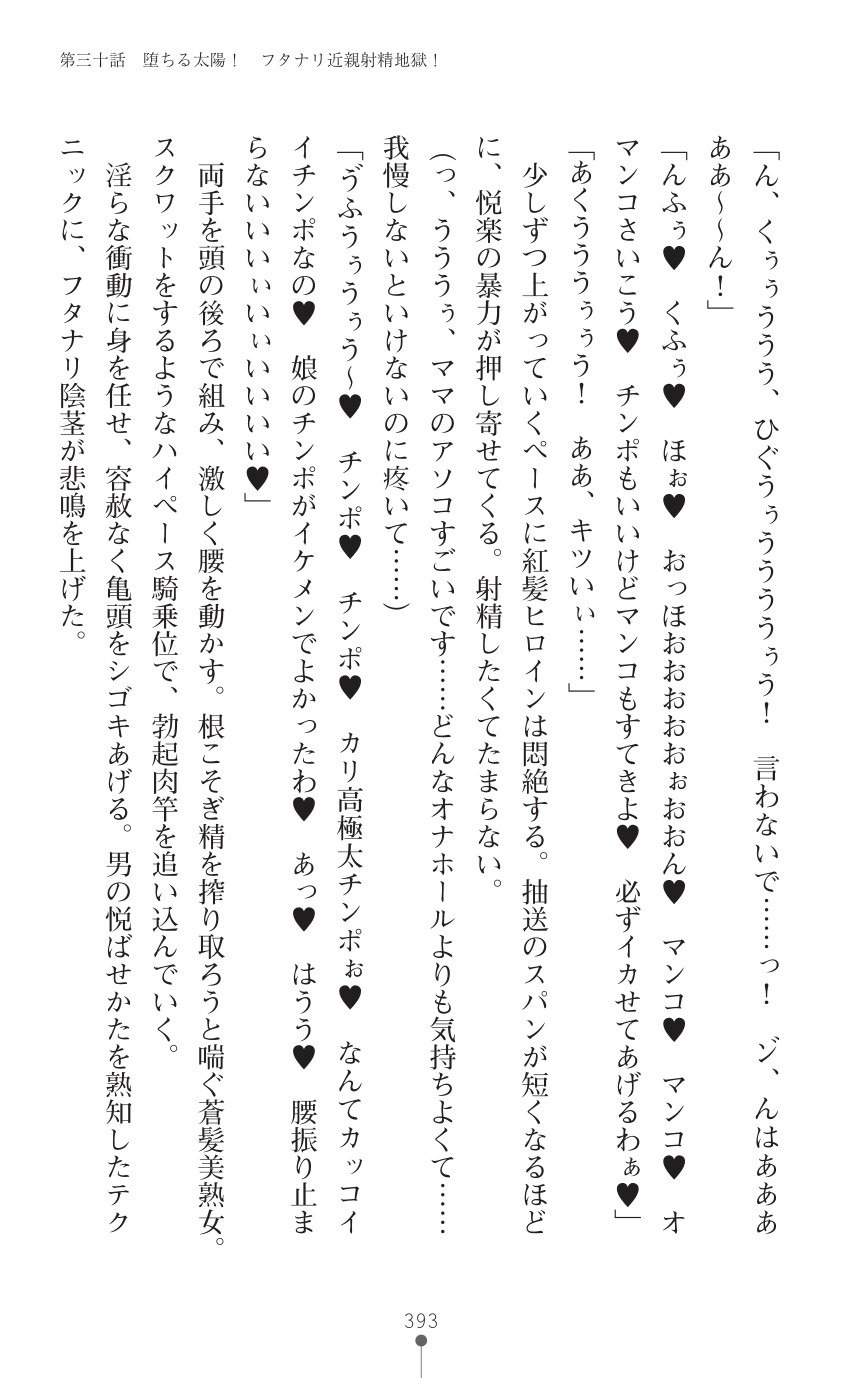 第三十話　堕ちる太陽！　フタナリ近親射精地獄！
「ん、くぅぅううう、ひぐうぅうううぅう！　言わないで……っ！　ゾ、んはあああ
ああ～～ん！」
「んふぅ♥　くふぅ♥　ほぉ♥　おっほおおおおおぉおおん♥　マンコ♥　マンコ♥　オ
マンコさいこう♥　チンポもいいけどマンコもすてきよ♥　必ずイカせてあげるわぁ♥」
「あくうううぅぅう！　ああ、キツいぃ……」
　少しずつ上がっていくペースに紅髪ヒロインは悶絶する。抽送のスパンが短くなるほど
に、悦楽の暴力が押し寄せてくる。射精したくてたまらない。
（っ、うううぅ、ママのアソコすごいです……どんなオナホールよりも気持ちよくて……
我慢しないといけないのに疼いて……）
「ゔふうぅうぅう～♥　チンポ♥　チンポ♥　カリ高極太チンポぉ♥　なんてカッコイ
イチンポなの♥　娘のチンポがイケメンでよかったわ♥　あっ♥　はうう♥　腰振り止ま
らないいいぃいぃいいいい♥」
　両手を頭の後ろで組み、激しく腰を動かす。根こそぎ精を搾り取ろうと喘ぐ蒼髪美熟女。
スクワットをするようなハイペース騎乗位で、勃起肉竿を追い込んでいく。
　淫らな衝動に身を任せ、容赦なく亀頭をシゴキあげる。男の悦ばせかたを熟知したテク
ニックに、フタナリ陰茎が悲鳴を上げた。
393